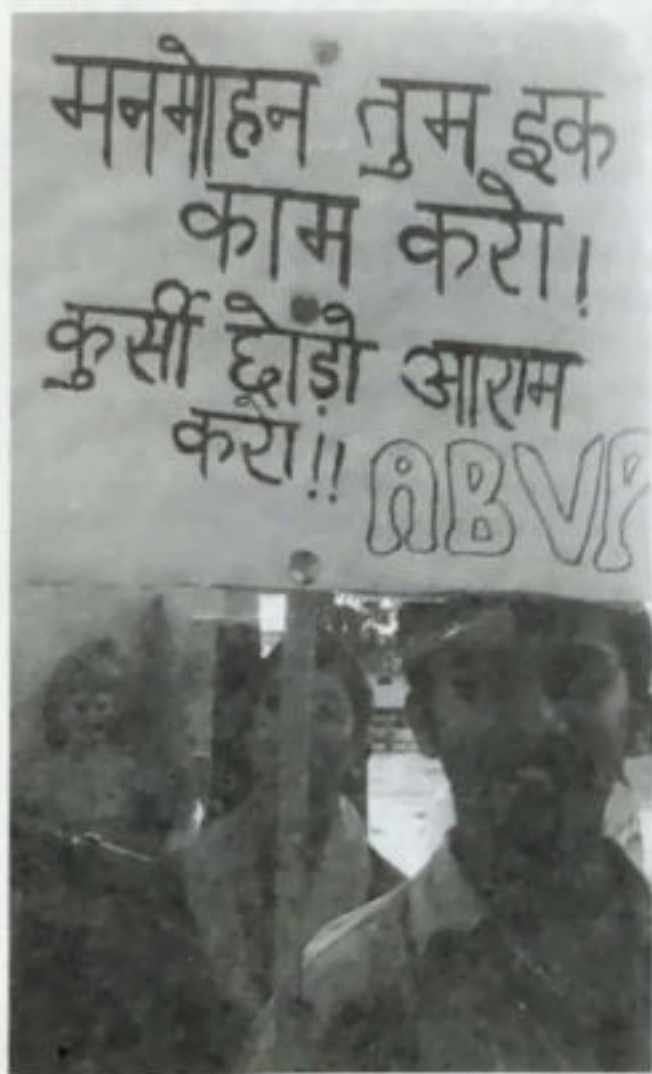 मनमोहन तुम इक
काम करो!
कुर्सी छोड़ो आराम
करो!! ABVP